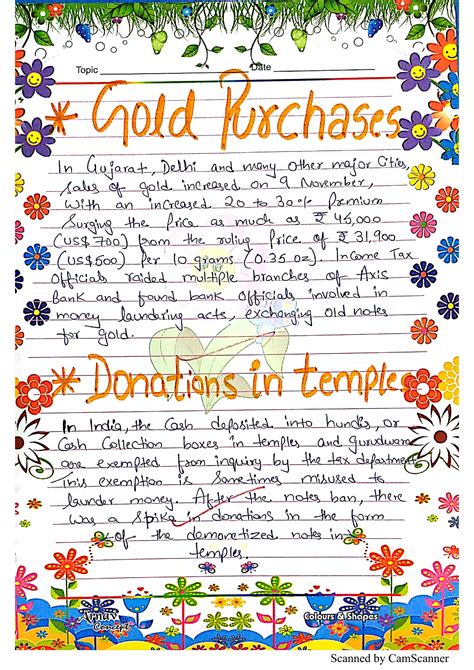 Topic Date
* Gold Purchases
In Gujarat, Delhi and many other major Cities
Sales of gold increased on 9 November,
With an increased 20 to 30% Premium
Surging the Price as much as ₹ 45,000
(US$ 700) from the ruling Price of ₹ 31,900
(US$500) Per 10 grams (0.35 oz). Income Tax
Officials raided multiple branches of Axis
Bank and found bank Officials involved in
money laundring acts, exchanging old notes
for gold.
* Donations in temples
In India, the Cash deposited into hundis, or
Cash Collection boxes in temples and gurudwara
are exempted from inquiry by the tax department
This exemption is Sometimes misused to
launder money. After the notes ban, there
was a Spike in donations in the form
of the demonetized notes in
temples.
Arnav Concept
Colours & Shapes
Scanned by CamScanner